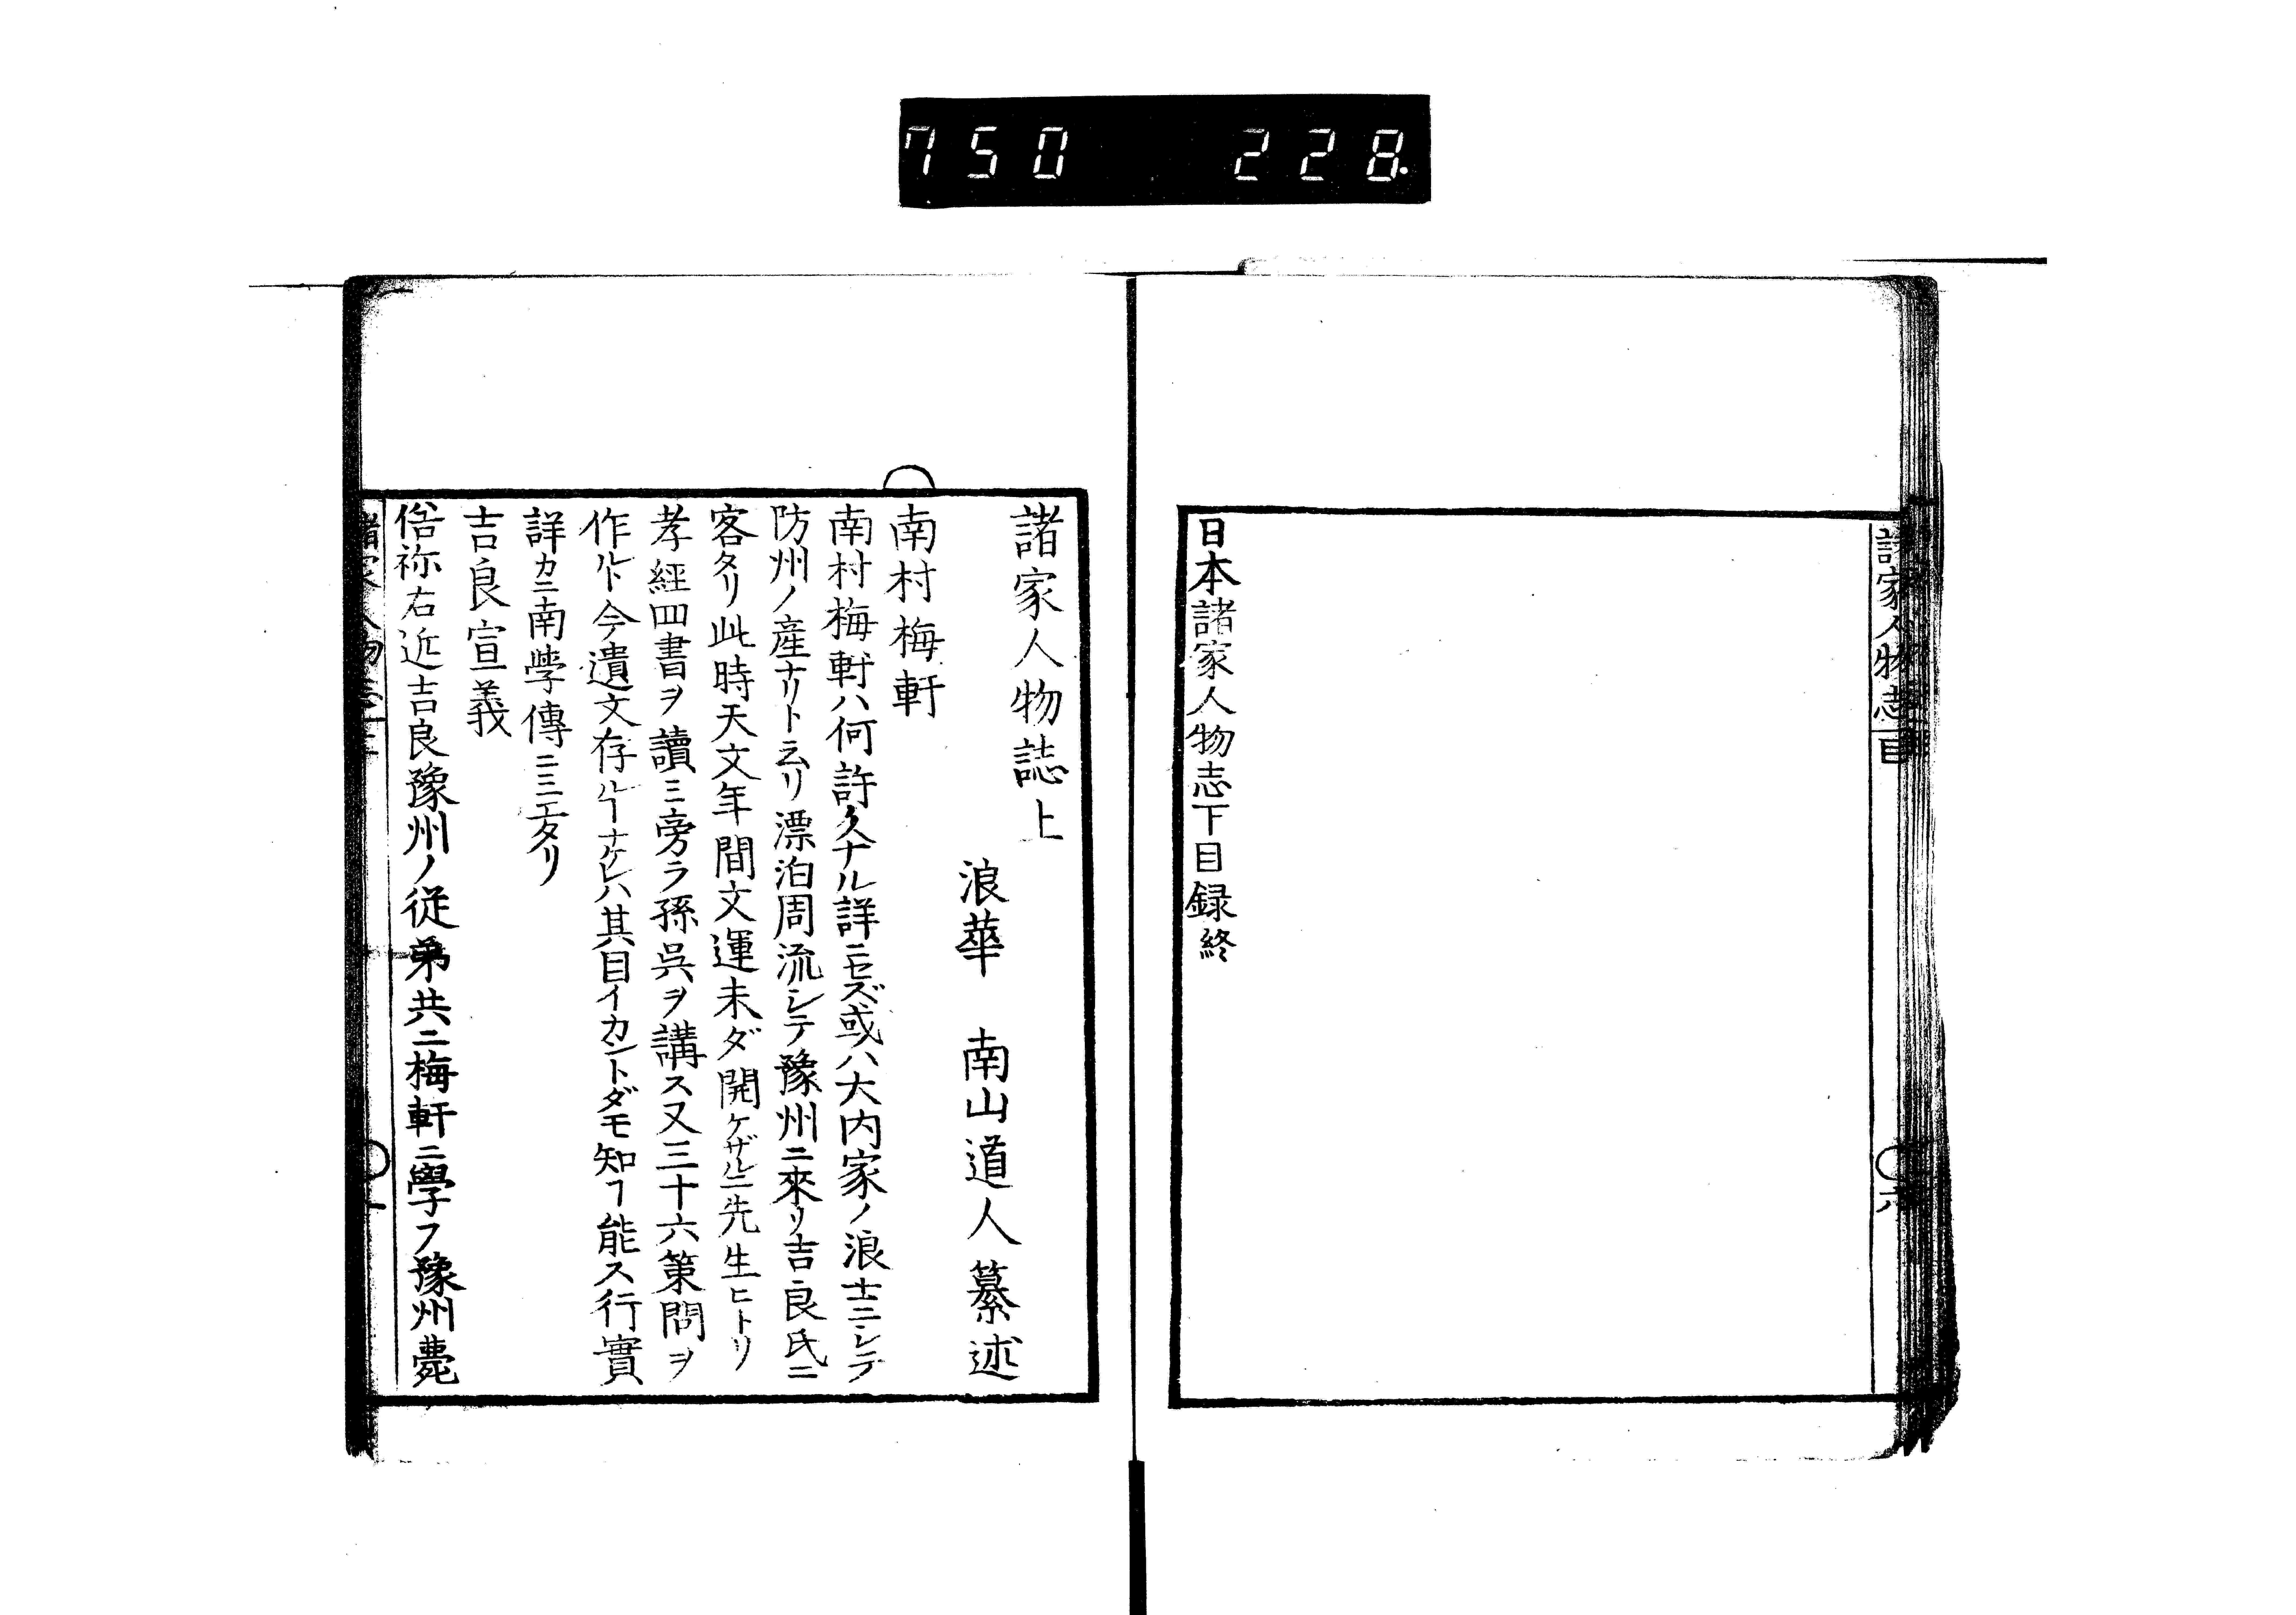 750 228.
諸家人物志 目
六
日本諸家人物志下目録終
諸家人物誌上
浪華 南山道人纂述
南村梅軒
南村梅軒ハ何許ノ人ナル詳ニセズ或ハ大内家ノ浪士ニシテ
防州ノ産ナリト云リ漂泊周流シテ豫州ニ來リ吉良氏ニ
客タリ此時天文年間文運未ダ開ケザルニ先生ヒトリ
孝經四書ヲ讀ミ旁ラ孫呉ヲ講ス又三十六策問ヲ
作ルト今遺文存ルヿナケレハ其目イカントダモ知ヿ能ス行實
詳カニ南學傳ニミエタリ
吉良宣義
俗祢右近吉良豫州ノ従弟共ニ梅軒ニ學フ豫州薨